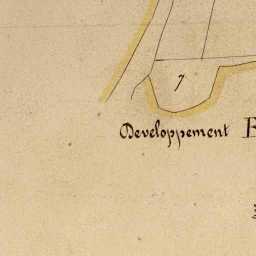 7
Developpement